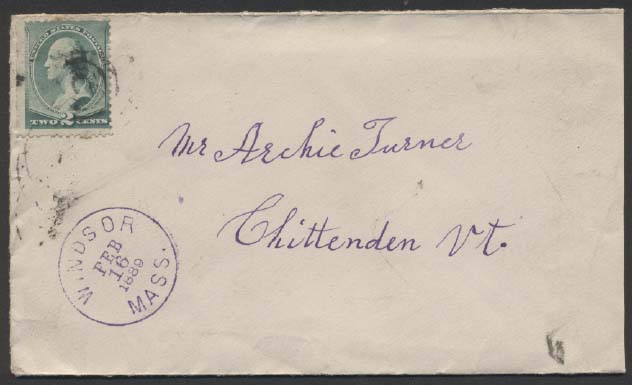 UNITED STATES POSTAGE
TWO 2 CENTS
Mr Archie Turner
Chittenden Vt.
WINDSOR
FEB
16
1889
MASS.